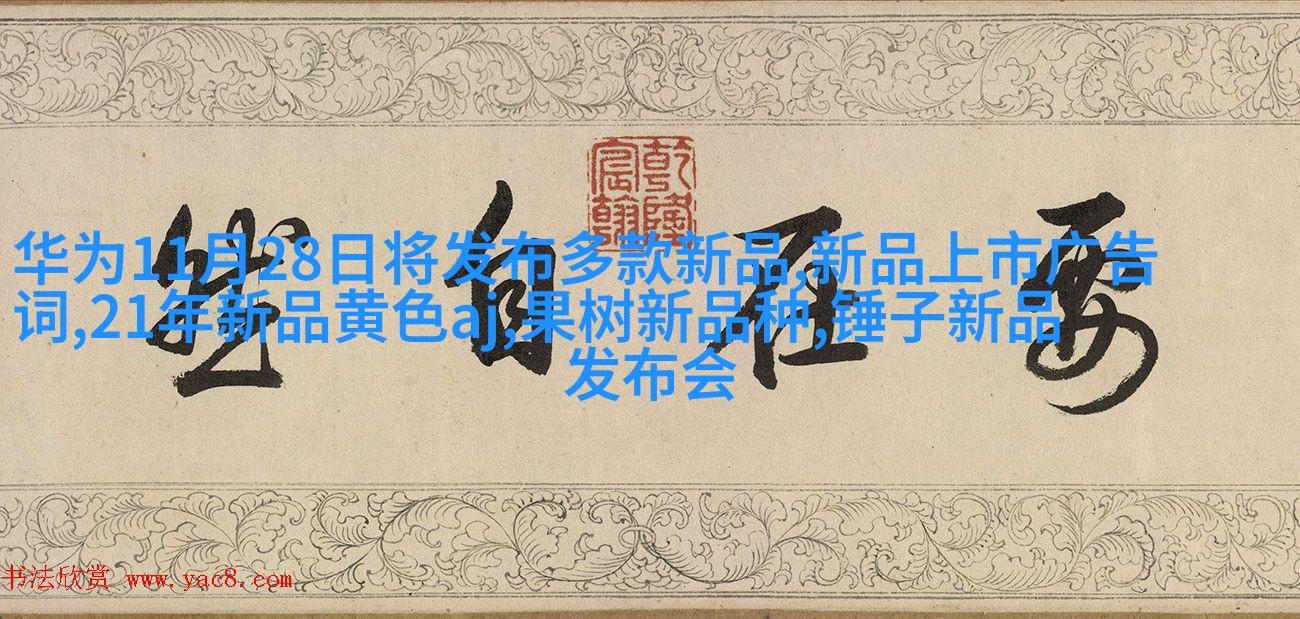 乾隆宸翰
要在自然
华为11月28日将发布多款新品,新品上市广告
词,21年新品黄色aj,果树新品种,锤子新品
发布会
书法欣赏 www.yac8.com